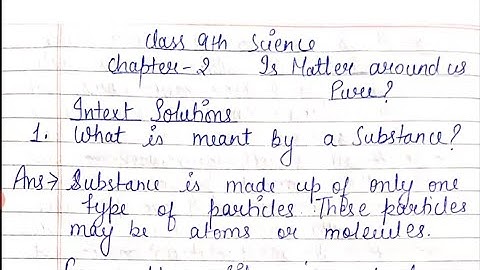 Class 9th Science
Chapter-2 Is Matter around us
Pure?
Intext Solutions
1. What is meant by a Substance?
Ans→ Substance is made up of only one
type of particles. These particles
may be atoms or molecules.